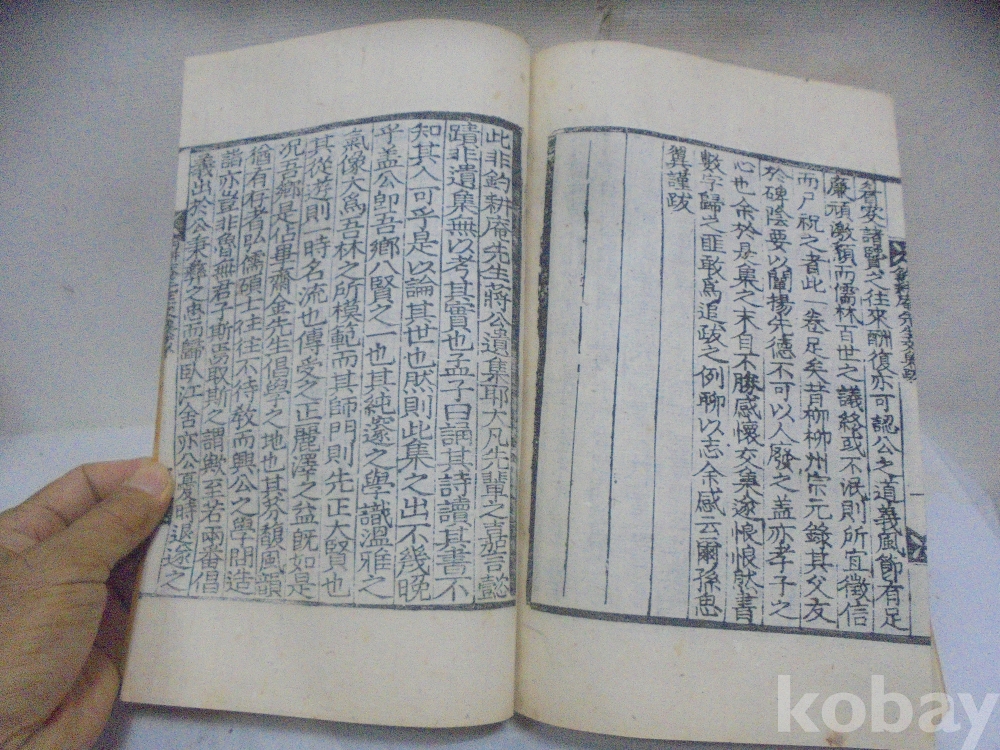 眷安諸賢之往來酬復亦可認公之道義風節有足
廉頑激頹而儒林百世之議終或不泯則所宜徵信
而尸祝之者此一卷足矣昔柳柳州宗元錄其父友
於碑陰要以闡揚先德不可以人廢之蓋亦孝子之
心也余於是集之末自不勝感懷交集遂悵悵然書
數字歸之匪敢爲追跋之例聊以志余感云爾孫思
翼謹跋
此非釣耕庵先生蔣公遺集耶大凡先輩之嘉言懿
蹟非遺集無以考其實也孟子曰誦其詩讀其書不
知其人可乎是以論其世也然則此集之出不幾晚
乎盖公卽吾鄉八賢之一也其純邃之學識溫雅之
氣像大爲吾林之所模範而其師門則先正大賢也
其從遊則一時名流也傳受之正麗澤之益旣如是
况吾鄉是佔畢齋金先生倡學之地也其芬馥風韻
猶有存者弘儒碩士往往不待敎而興公之學問造
詣亦豈非魯無君子斯焉取斯之謂歟至若兩番倡
義出於公秉彝之忠而歸臥江舍亦公夏時退遂之
kobay